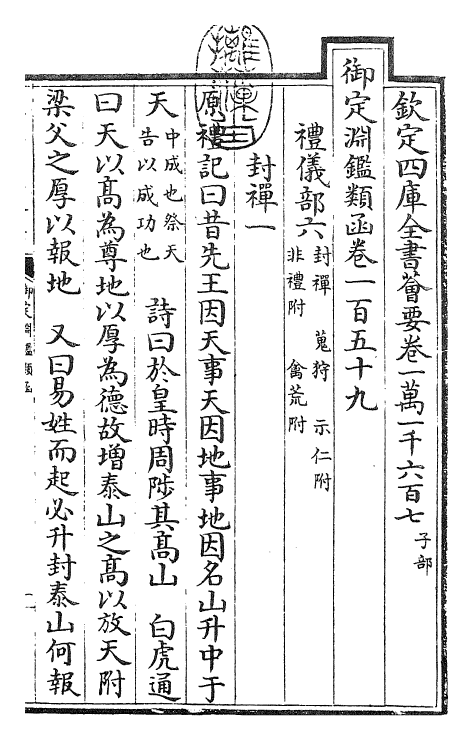 欽定四庫全書薈要卷一萬一千六百七 子部
御定淵鑑類函卷一百五十九
禮儀部六 封禪 蒐狩 示仁附 非禮附 禽荒附
封禪一
原禮記曰昔先王因天事天因地事地因名山升中于
天 中成也祭天告以成功也 詩曰於皇時周陟其髙山 白虎通
曰天以髙為尊地以厚為德故增泰山之髙以放天附
梁父之厚以報地 又曰易姓而起必升封泰山何報
御定淵鑑類函